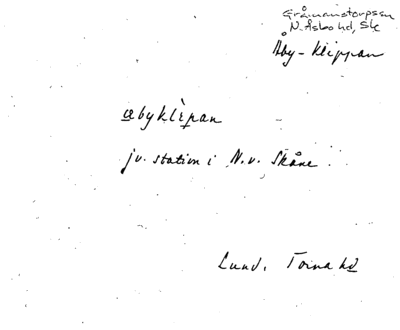 Gråmanstorps sn
N. Åsbo hd, Sk
Åby-Klippan
æbyklèpan
jv. station i N.v. Skåne.
Lund. Torna hd